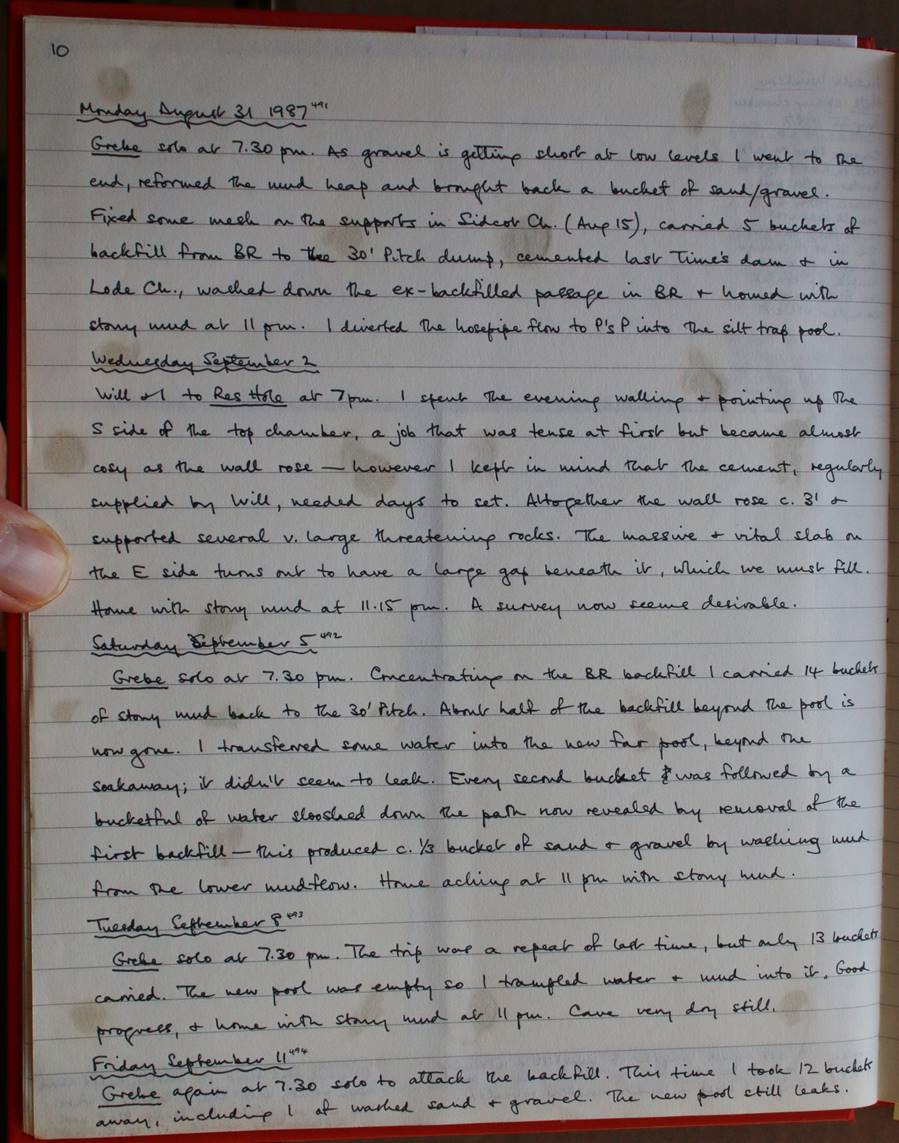 10
Monday August 31 1987 491
Grebe solo at 7.30 pm. As gravel is getting short at low levels I went to the
end, reformed the mud heap and brought back a bucket of sand/gravel.
Fixed some mesh on the supports in Sidcot Ch. (Aug 15), carried 5 buckets of
backfill from BR to the 30' Pitch dump, cemented last Time's dam & in
Lode Ch., washed down the ex-backfilled passage in BR & homed with
stony mud at 11 pm. I diverted the hosepipe flow to P's P into the silt trap pool.
Wednesday September 2
Will & I to Res Hole at 7pm. I spent the evening walling & pointing up the
S side of the top chamber, a job that was tense at first but became almost
cosy as the wall rose — however I kept in mind that the cement, regularly
supplied by Will, needed days to set. Altogether the wall rose c. 3' &
supported several v. large threatening rocks. The massive & vital slab on
the E side turns out to have a large gap beneath it, which we must fill.
Home with stony mud at 11.15 pm. A survey now seems desirable.
Saturday September 5 492
Grebe solo at 7.30 pm. Concentrating on the BR backfill I carried 14 buckets
of stony mud back to the 30' Pitch. About half of the backfill beyond the pool is
now gone. I transferred some water into the new far pool, beyond the
soakaway; it didn't seem to leak. Every second bucket was followed by a
bucketful of water slooshed down the path now revealed by removal of the
first backfill — this produced c. 1/3 bucket of sand & gravel by washing mud
from the lower mudflow. Home aching at 11 pm with stony mud.
Tuesday September 8 493
Grebe solo at 7.30 pm. The trip was a repeat of last time, but only 13 buckets
carried. The new pool was empty so I trampled water & mud into it. Good
progress, & home with stony mud at 11 pm. Cave very dry still.
Friday September 11 494
Grebe again at 7.30 solo to attack the backfill. This time I took 12 buckets
away, including 1 of washed sand & gravel. The new pool still leaks.